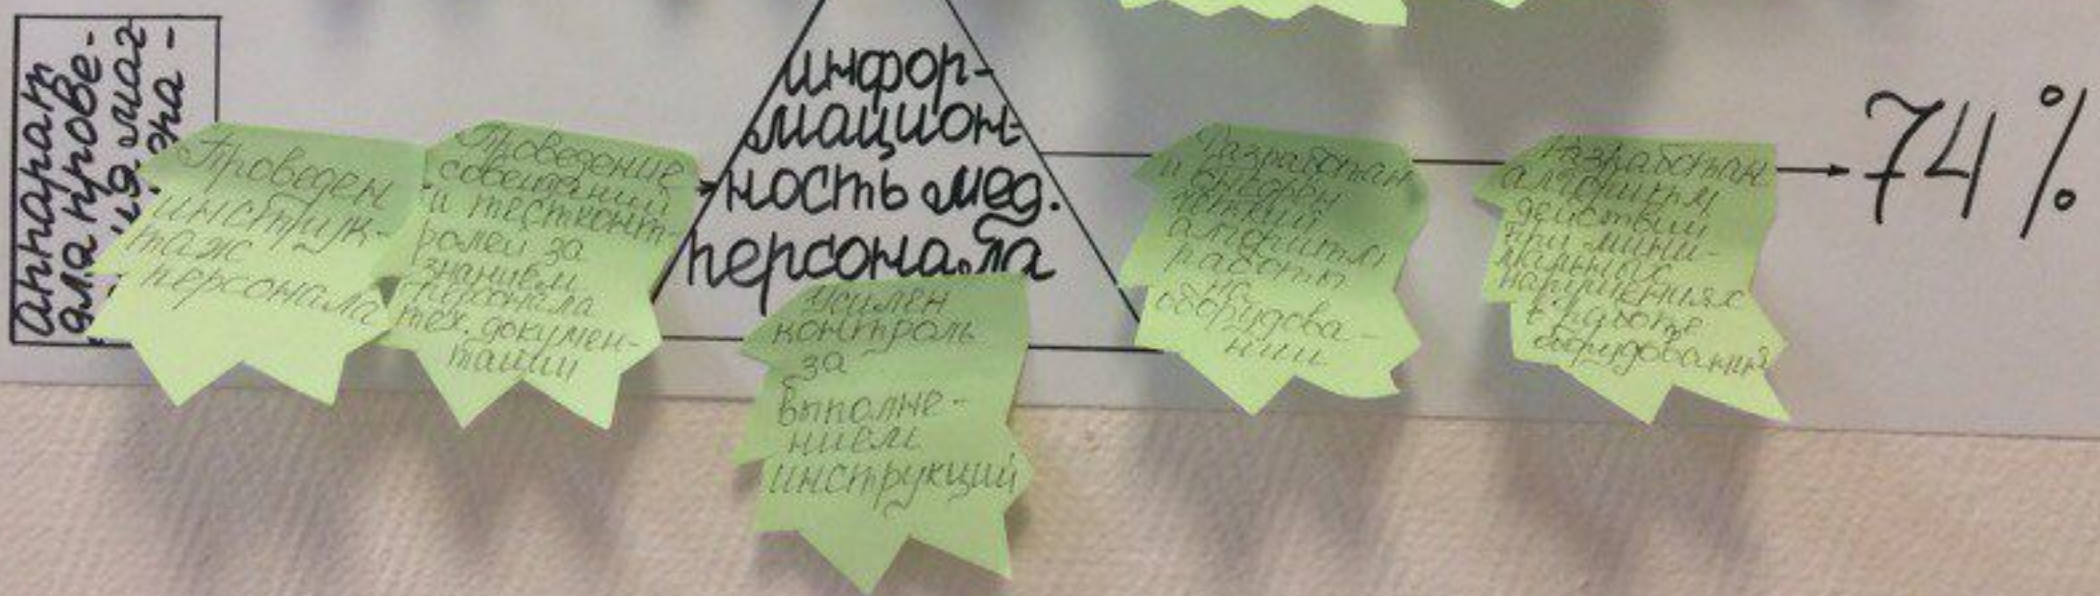 аппарат
для прове-
диаг
эна-
Проведен
инструк-
таж
персонала
Проведение
совещаний
и тестконт-
ролей за
знанием
персонала
тех. докумен-
тации
инфор-
мацион-
ность мед.
персонала
усилен
контроль
за
выполне-
нием
инструкций
Разработан
и внедрён
чёткий
алгоритм
работы
на
оборудова-
нии
Разработан
алгоритм
действий
при мини-
мальных
нарушениях
в работе
оборудования
74%